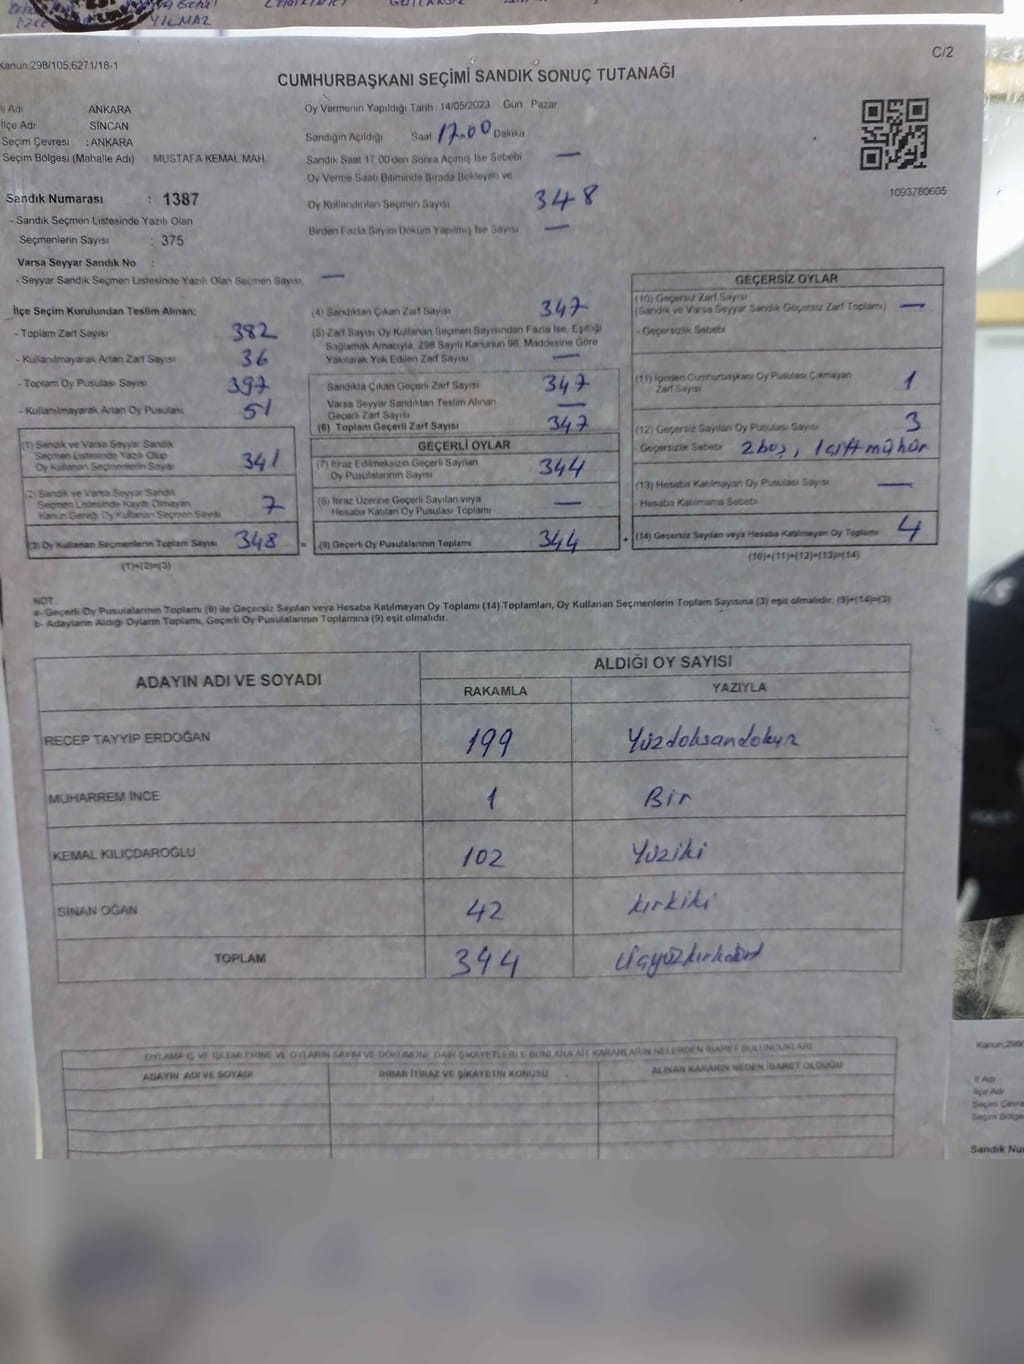 YILMAZ
Kanun:298/105.6271/18-1
C/2
CUMHURBAŞKANI SEÇİMİ SANDIK SONUÇ TUTANAĞI
İl Adı ANKARA
İlçe Adı SİNCAN
Seçim Çevresi : ANKARA
Seçim Bölgesi (Mahalle Adı) MUSTAFA KEMAL MAH.
Sandık Numarası : 1387
- Sandık Seçmen Listesinde Yazılı Olan
Seçmenlerin Sayısı : 375
Varsa Seyyar Sandık No :
- Seyyar Sandık Seçmen Listesinde Yazılı Olan Seçmen Sayısı: —
Oy Vermenin Yapıldığı Tarih 14/05/2023 Gün Pazar
Sandığın Açıldığı Saat 17.00 Dakika
Sandık Saat 17.00'den Sonra Açılmış İse Sebebi —
Oy Verme Saati Bitiminde Sırada Bekleyen ve
Oy Kullandırılan Seçmen Sayısı 348
Birden Fazla Sayım Döküm Yapılmış İse Sayısı —
1093780605
İlçe Seçim Kurulundan Teslim Alınan:
- Toplam Zarf Sayısı 382
- Kullanılmayarak Artan Zarf Sayısı 36
- Toplam Oy Pusulası Sayısı 397
- Kullanılmayarak Artan Oy Pusulası 51
(1) Sandık ve Varsa Seyyar Sandık
Seçmen Listesinde Yazılı Olup
Oy Kullanan Seçmenlerin Sayısı 341
(2) Sandık ve Varsa Seyyar Sandık
Seçmen Listesinde Kayıtlı Olmayan
Kanun Gereği Oy Kullanan Seçmen Sayısı 7
(3) Oy Kullanan Seçmenlerin Toplam Sayısı 348 =
(1)+(2)=(3)
(4) Sandıktan Çıkan Zarf Sayısı 347
(5) Zarf Sayısı Oy Kullanan Seçmen Sayısından Fazla İse, Eşitliği
Sağlamak Amacıyla, 298 Sayılı Kanunun 98. Maddesine Göre
Yakılarak Yok Edilen Zarf Sayısı —
Sandıkta Çıkan Geçerli Zarf Sayısı 347
Varsa Seyyar Sandıktan Teslim Alınan
Geçerli Zarf Sayısı —
(6) Toplam Geçerli Zarf Sayısı 347
GEÇERLİ OYLAR
(7) İtiraz Edilmeksizin Geçerli Sayılan
Oy Pusulalarının Sayısı 344
(8) İtiraz Üzerine Geçerli Sayılan veya
Hesaba Katılan Oy Pusulası Toplamı —
(9) Geçerli Oy Pusulalarının Toplamı 344 +
GEÇERSİZ OYLAR
(10) Geçersiz Zarf Sayısı
(Sandık ve Varsa Seyyar Sandık Geçersiz Zarf Toplamı) —
- Geçersizlik Sebebi
(11) İçinden Cumhurbaşkanı Oy Pusulası Çıkmayan
Zarf Sayısı 1
(12) Geçersiz Sayılan Oy Pusulası Sayısı 3
Geçersizlik Sebebi 2 boş, 1 çift mühür
(13) Hesaba Katılmayan Oy Pusulası Sayısı —
- Hesaba Katılmama Sebebi
(14) Geçersiz Sayılan veya Hesaba Katılmayan Oy Toplamı 4
(10)+(11)+(12)+(13)=(14)
NOT:
a- Geçerli Oy Pusulalarının Toplamı (9) ile Geçersiz Sayılan veya Hesaba Katılmayan Oy Toplamı (14) Toplamları, Oy Kullanan Seçmenlerin Toplam Sayısına (3) eşit olmalıdır. (9)+(14)=(3)
b- Adayların Aldığı Oyların Toplamı, Geçerli Oy Pusulalarının Toplamına (9) eşit olmalıdır.
ADAYIN ADI VE SOYADI ALDIĞI OY SAYISI
RAKAMLA YAZIYLA
RECEP TAYYIP ERDOĞAN 199 Yüzdoksandokuz
MUHARREM İNCE 1 Bir
KEMAL KILIÇDAROĞLU 102 Yüziki
SİNAN OĞAN 42 kırkiki
TOPLAM 344 Üçyüzkırkdört
OYLAMA İŞ VE İŞLEMLERİNE VE OYLARIN SAYIM VE DÖKÜMÜNE DAİR ŞİKAYETLERLE BUNLARA AİT KARARLARIN NELERDEN İBARET BULUNDUKLARI
ADAYIN ADI VE SOYADI İHBAR İTİRAZ VE ŞİKAYETİN KONUSU ALINAN KARARIN NEDEN İBARET OLDUĞU
Kanun:298/
İl Adı
İlçe Adı
Seçim Çevre
Seçim Bölge
Sandık Nu